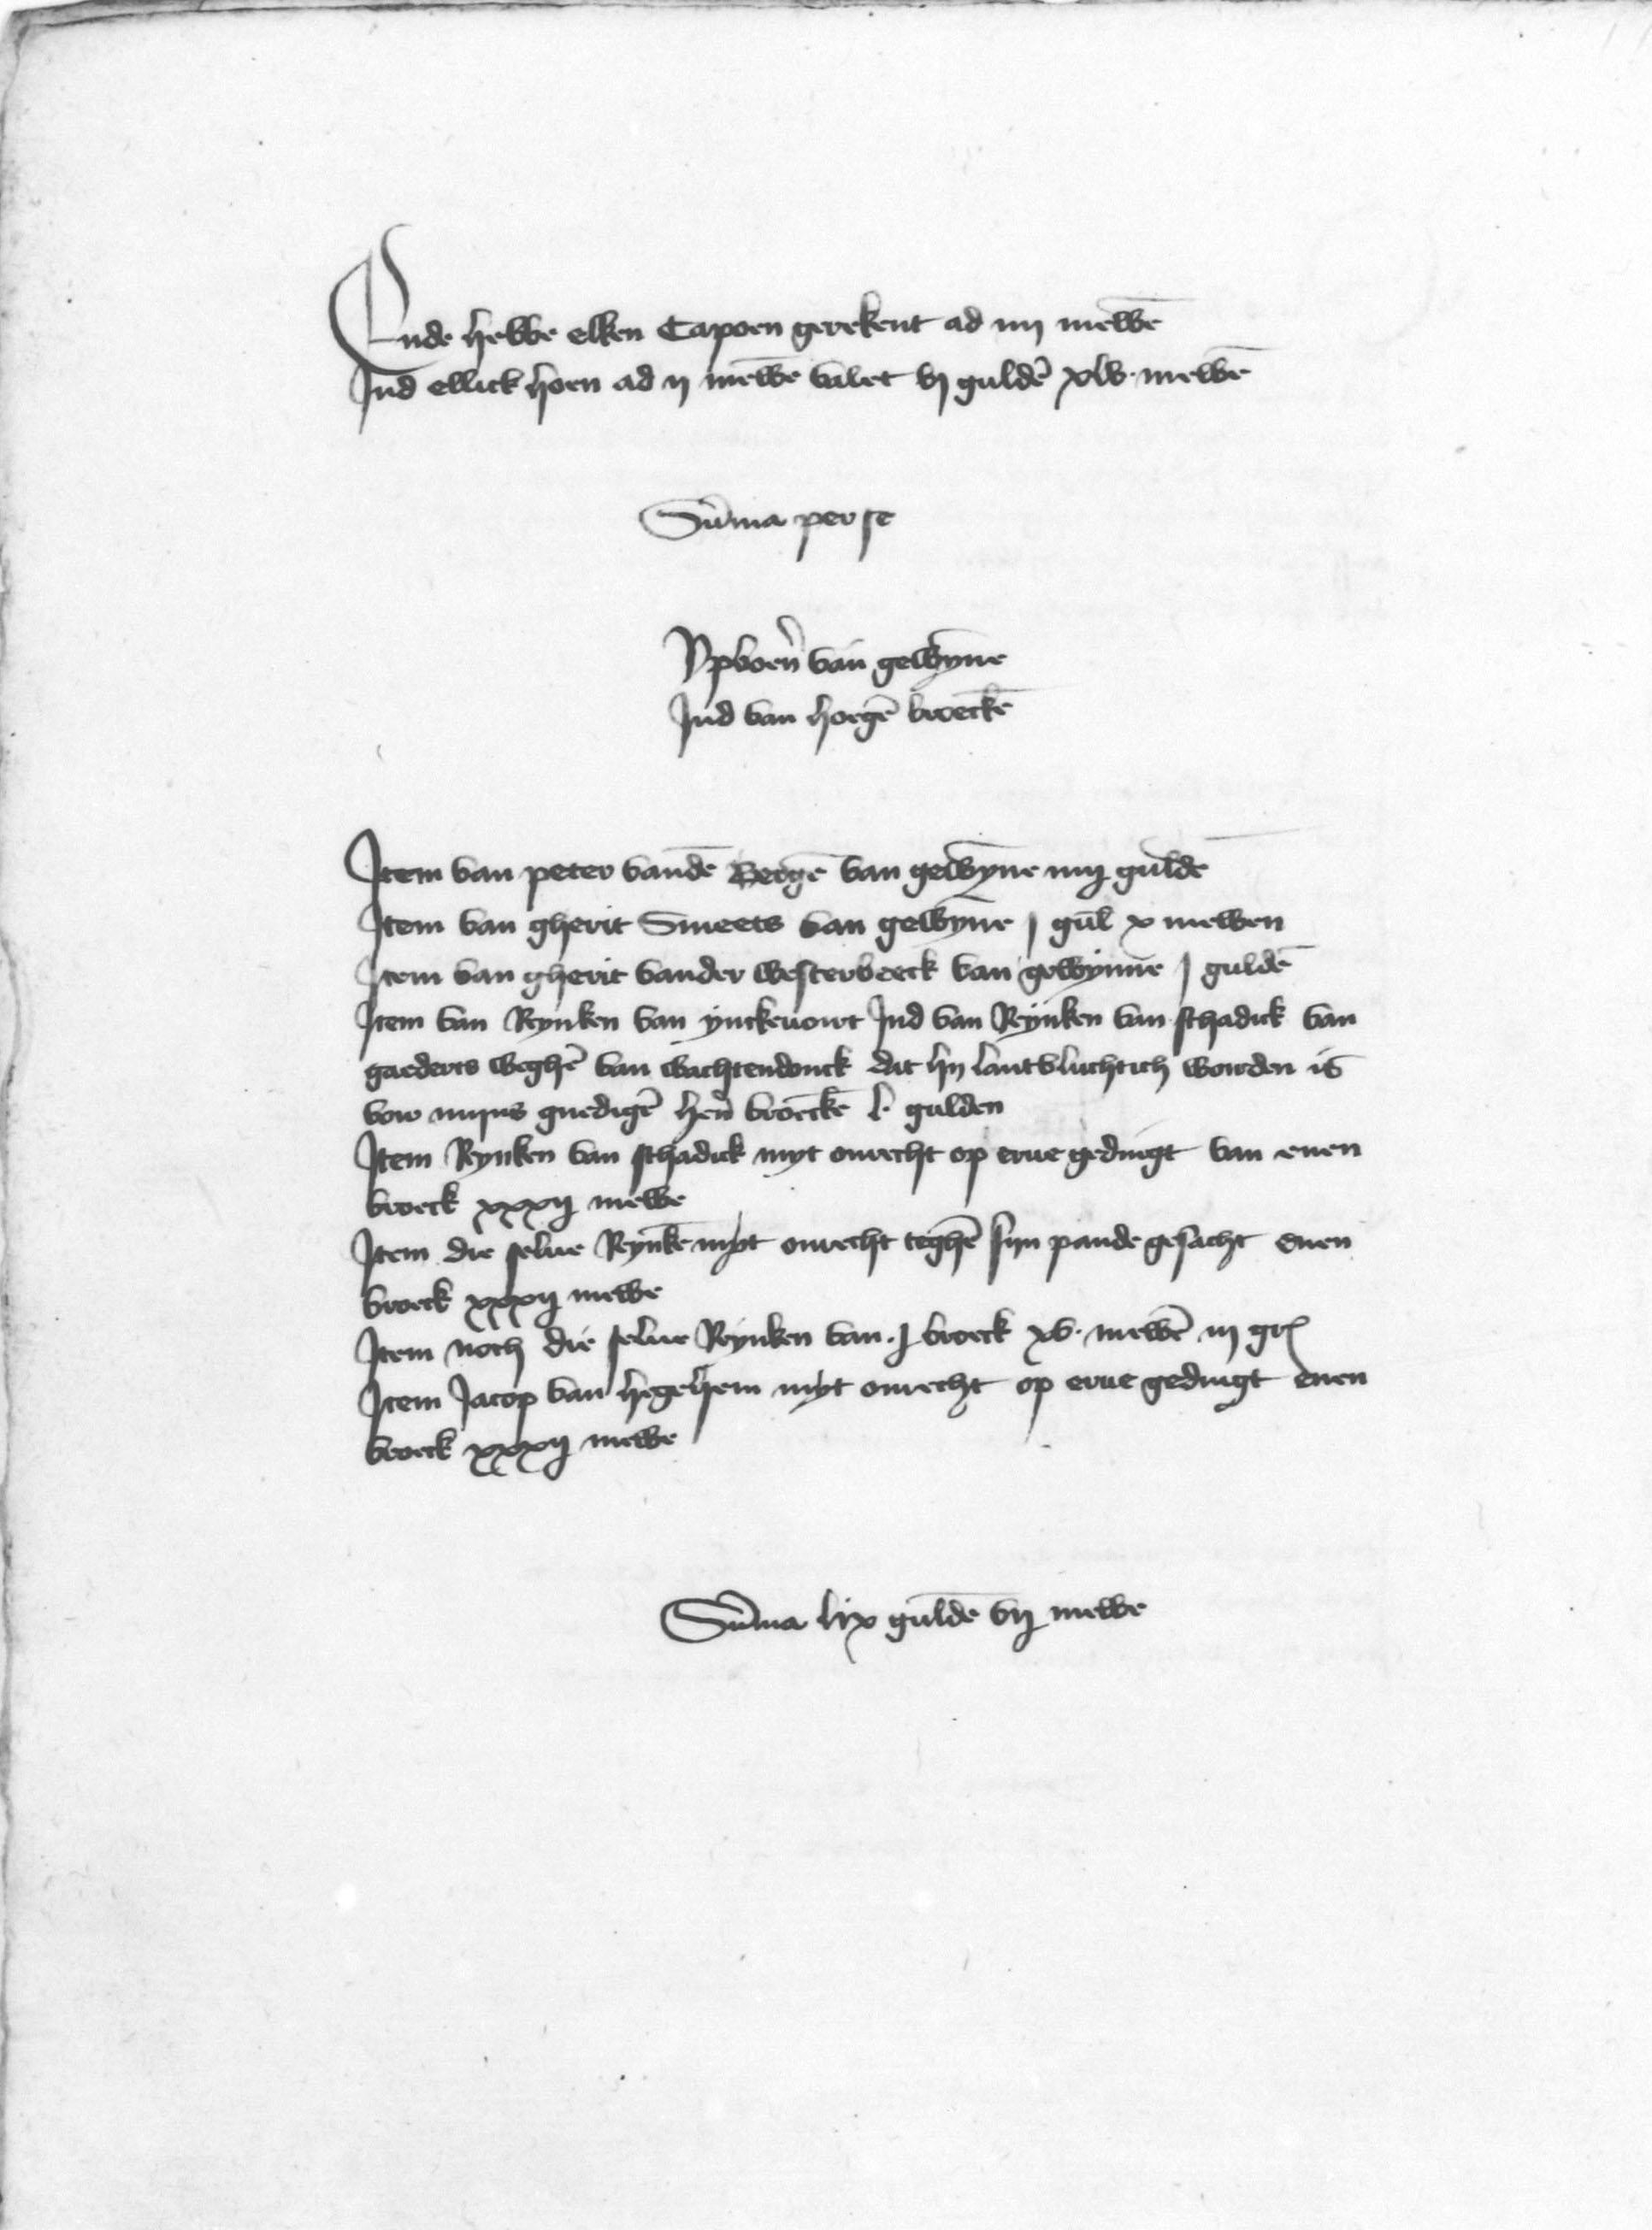 Ende hebbe elken Capoen gerekent ad iiij mewē
Ind ellick hoen ad ij mewē valet vj guldē xlv · mewē
Sūma per se
Vpboerñ van gewyñe
Ind van hoegē broeckē
Item van peter vandē Bergē van gewyñe iiij guldē
Item van gherit Smeets van gewyñe j gul̄ x mewen
Item van gherit vander westerbeeck van gewynne j guldē
Item van Reynken van ynckeuort Ind van Reynken van schadick van
gaederts weghē van wachtendonck dat hij lantvluchtich worden is
vor mijns gnedigē heñ broeckē l · gulden
Item Reynken van schadick myt onrecht op erue gedingt van enen
broeck xxxij mewe
Item die selue Reynkē myt onrecht teghē sijn pande gesacht enen
broeck xxxij mewe
Item noch die selue Reynken van · j broeck xv · mewē iij gr̄
Item Jacop van hegehem myt onrecht op erue gedingt enen
broeck xxxij mewe
Sūma lix guldē vij mewe